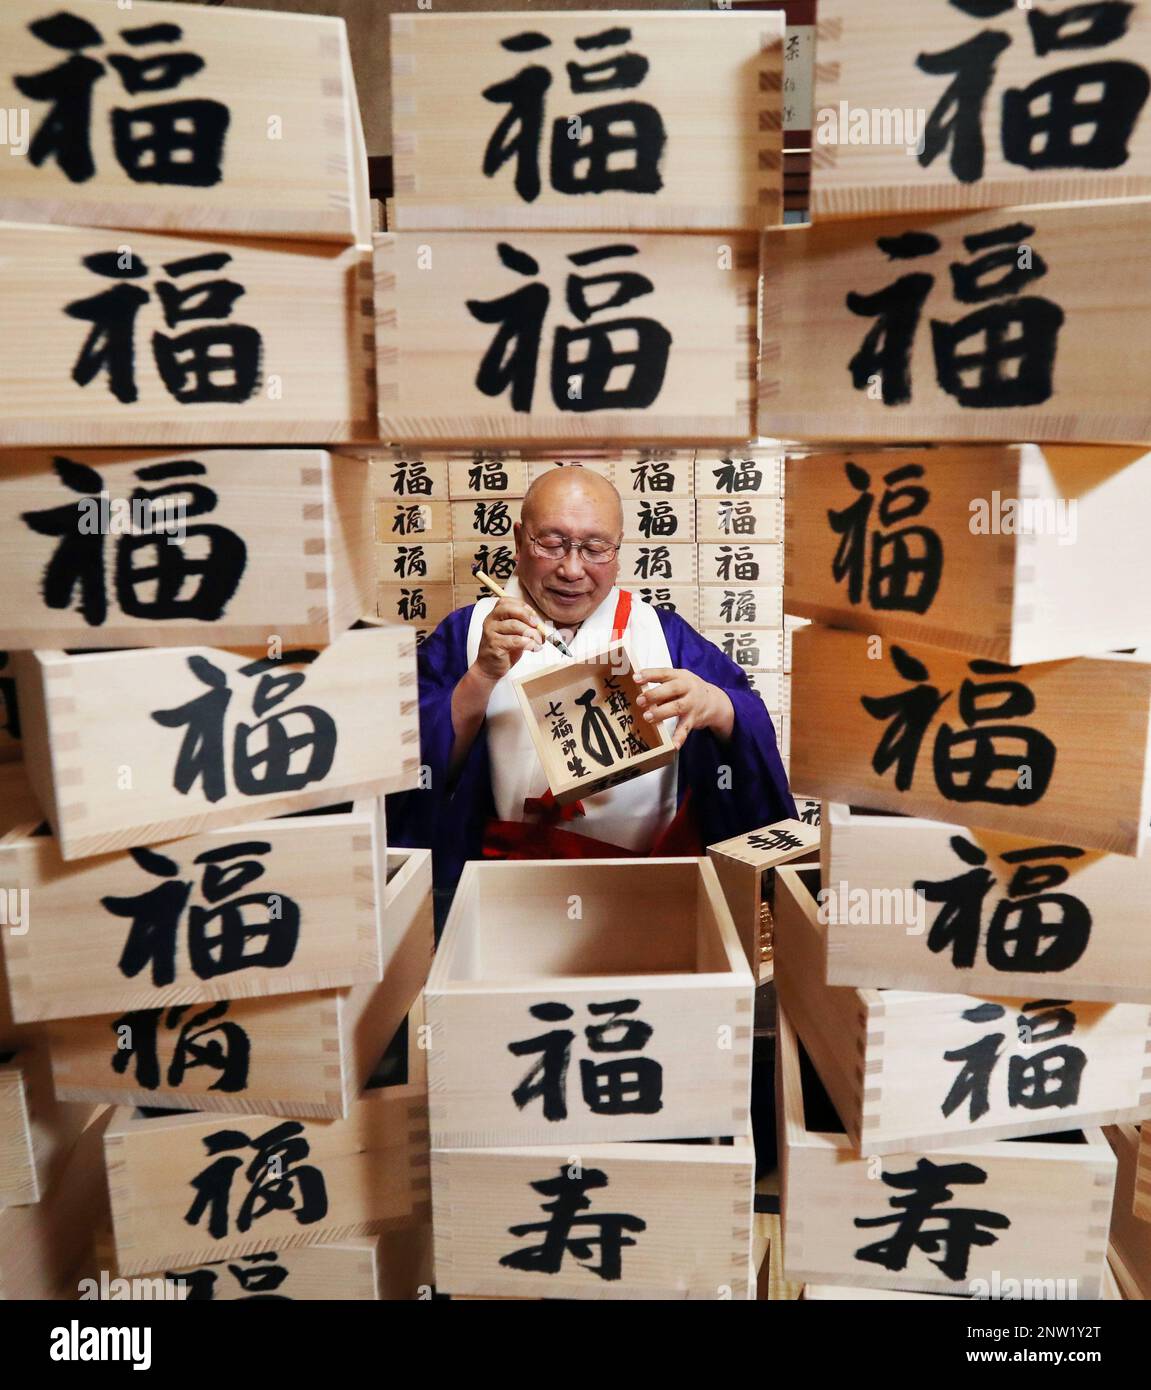 福 福 福
福 福 福
福 福
福 福
福 福 福 福 福
福 福 福 福
福 福 福 福
福 福 福
七難即滅
七福即生
寿
福 福
福 福
福
福
福
寿 寿
alamy
Image ID: 2NW1Y2T
www.alamy.com